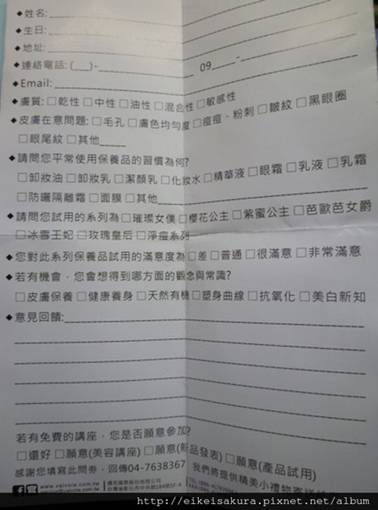 ◆姓名:
◆生日:
◆地址:
◆連絡電話: (___)- 09____-
◆Email:
◆膚質:□乾性 □中性 □油性 □混合性 □敏感性
◆皮膚在意問題:□毛孔 □膚色均勻度 □痘痘、粉刺 □皺紋 □黑眼圈
□眼尾紋 □其他
◆請問您平常使用保養品的習慣為何?
□卸妝油 □卸妝乳 □潔顏乳 □化妝水 □精華液 □眼霜 □乳液 □乳霜
□防曬隔離霜 □面膜 □其他
◆請問您試用的系列為 □璀璨女僕 □櫻花公主 □紫蜜公主 □芭歐芭女爵
□冰雪王妃 □玫瑰皇后 □淨痘系列
◆您對此系列保養品試用的滿意度為 □差 □普通 □很滿意 □非常滿意
◆若有機會，您會想得到哪方面的觀念與常識?
□皮膚保養 □健康養身 □天然有機 □塑身曲線 □抗氧化 □美白新知
◆意見回饋:
若有免費的講座，您是否願意參加?
□還好 □願意(美容講座) □願意(新品發表) □願意(產品試用)
感謝您填寫此問券，回傳04-7638367 我們將提供精美小禮物
http://eikeisakura.pixnet.net/album